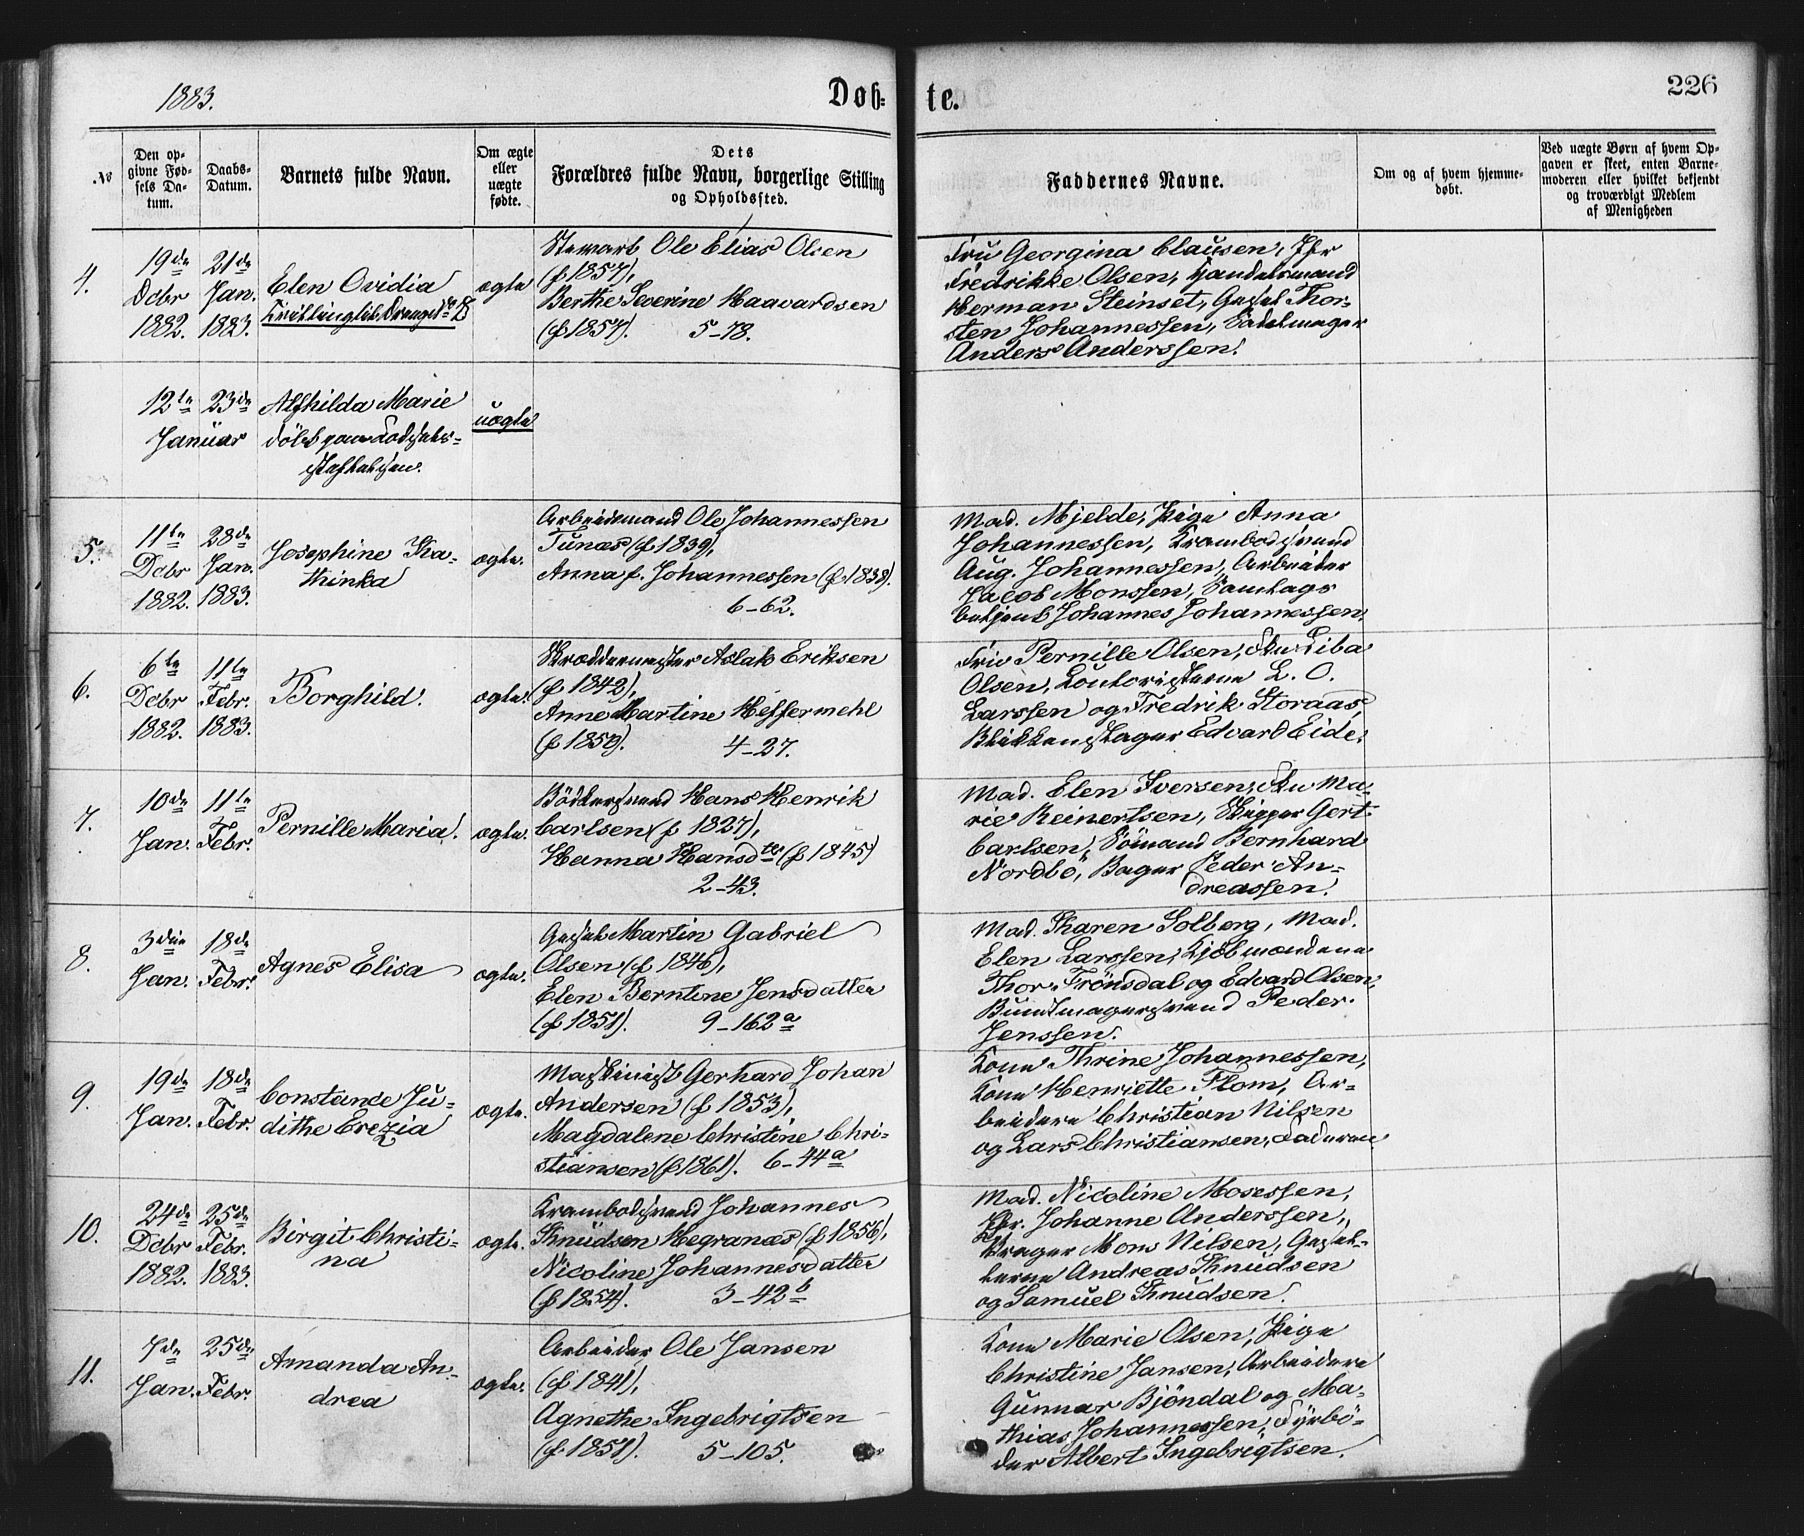 1883.
Døb-
te.
226
№
Den op-
givne Fød-
sels Da-
tum.
Daabs-
Datum.
Barnets fulde Navn.
Om ægte
eller
uægte
fødte.
Dets
Forældres fulde Navn, borgerlige Stilling
og Opholdssted.
Faddernes Navne.
Om og af hvem hjemme-
døbt.
Ved uægte Børn af hvem Op-
gaven er skeet, enten Barne-
moderen eller hvilket bekjendt
og troværdigt Medlem
af Menigheden
4.
19de
Dcbr
1882.
21de
Jan.
1883.
Elen Ovidia
ægte
Steward Ole Elias Olsen
(f 1857),
Berthe Severine Haavardsen
(f 1857). 5-78.
Fru Georgina Clausen, Jfr
Fredrikke Olsen, Handelsmand
Herman Steinset, Gesel Thor-
sten Johannessen, Sadelmager
Anders Anderssen.
12te
23de
Januar
Alfhilda Marie
døbt paa Fødsels-
stiftelsen.
uægte
5.
11te
Dcbr
1882.
28de
Jan.
1883.
Josephine Ka-
thinka
ægte.
Arbeidsmand Ole Johannessen
Tunæs (f 1839),
Anna f. Johannessen (f 1838).
6-62.
Mad. Mjelde, Pige Anna
Johannessen, Krambodsvend
Aug. Johannessen, Arbeider
Jacob Monssen, Samlags
betjent Johannes Johannessen.
6.
6te
Dcbr
1882.
11te
Febr.
1883.
Borghild.
ægte.
Skræddermester Aslak Eriksen
(f 1842),
Anne Martine Heffermehl
(f 1850). 4-27.
Frk Pernille Olsen, Fru Liba
Olsen, Contoristerne L. O.
Larssen og Fredrik Storaas,
Blikkenslager Edvard Eide.
7.
10de
Jan.
11te
Febr.
Pernille Maria.
ægte.
Bødkersvend Hans Henrik
Carlsen (f 1827),
Hanna Hansdtr (f 1845)
2-43.
Mad. Elen Iversen, Fru Ma-
rie Reinertsen, Skipper Gert
Carlsen, Sømand Bernhard
Nordbö, Bager Peder An-
dreassen.
8.
3die
Jan.
18de
Febr.
Agnes Elisa
ægte.
Gesel Martin Gabriel
Olsen (f 1846),
Elen Berntine Jensdatter
(f 1851). 9-162a
Mad. Karen Solberg, Mad.
Elen Larssen, Kjøbmændene
Thor. Frönsdal og Edvard Olsen,
Buntmagersvend Peder
Jenssen.
9.
19de
Jan.
18de
Febr.
Constance Ju-
dithe Erezia
ægte.
Maskinist Gerhard Johan
Andersen (f 1853),
Magdalene Christine Chri-
stiansen (f 1861). 6-44a
Kone Thrine Johannessen,
Kone Henriette Flom, Ar-
beidere Christian Nilsen
og Lars Christiansen, Faderen
10.
24de
Dcbr
1882.
25de
Febr.
1883.
Birgit Christi-
na
ægte.
Krambodsvend Johannes
Knudsen Hegranæs (f 1856),
Nicoline Johannesdatter
(f 1854). 3-42b
Mad. Nicoline Mosessen,
Jfr. Johanne Anderssen,
Vrager Mons Nilsen, Gesel-
lerne Andreas Knudsen
og Samuel Knudsen.
11.
7de
Jan.
25de
Febr.
Amanda An-
drea
ægte.
Arbeider Ole Jansen
(f 1841),
Agnethe Ingebrigtsen
(f 1851). 5-105.
Kone Marie Olsen, Pige
Christine Jansen, Arbeidere
Gunnar Bjöndal og Ma-
thias Johannessen, Fyrbö-
der Albert Ingebrigtsen.